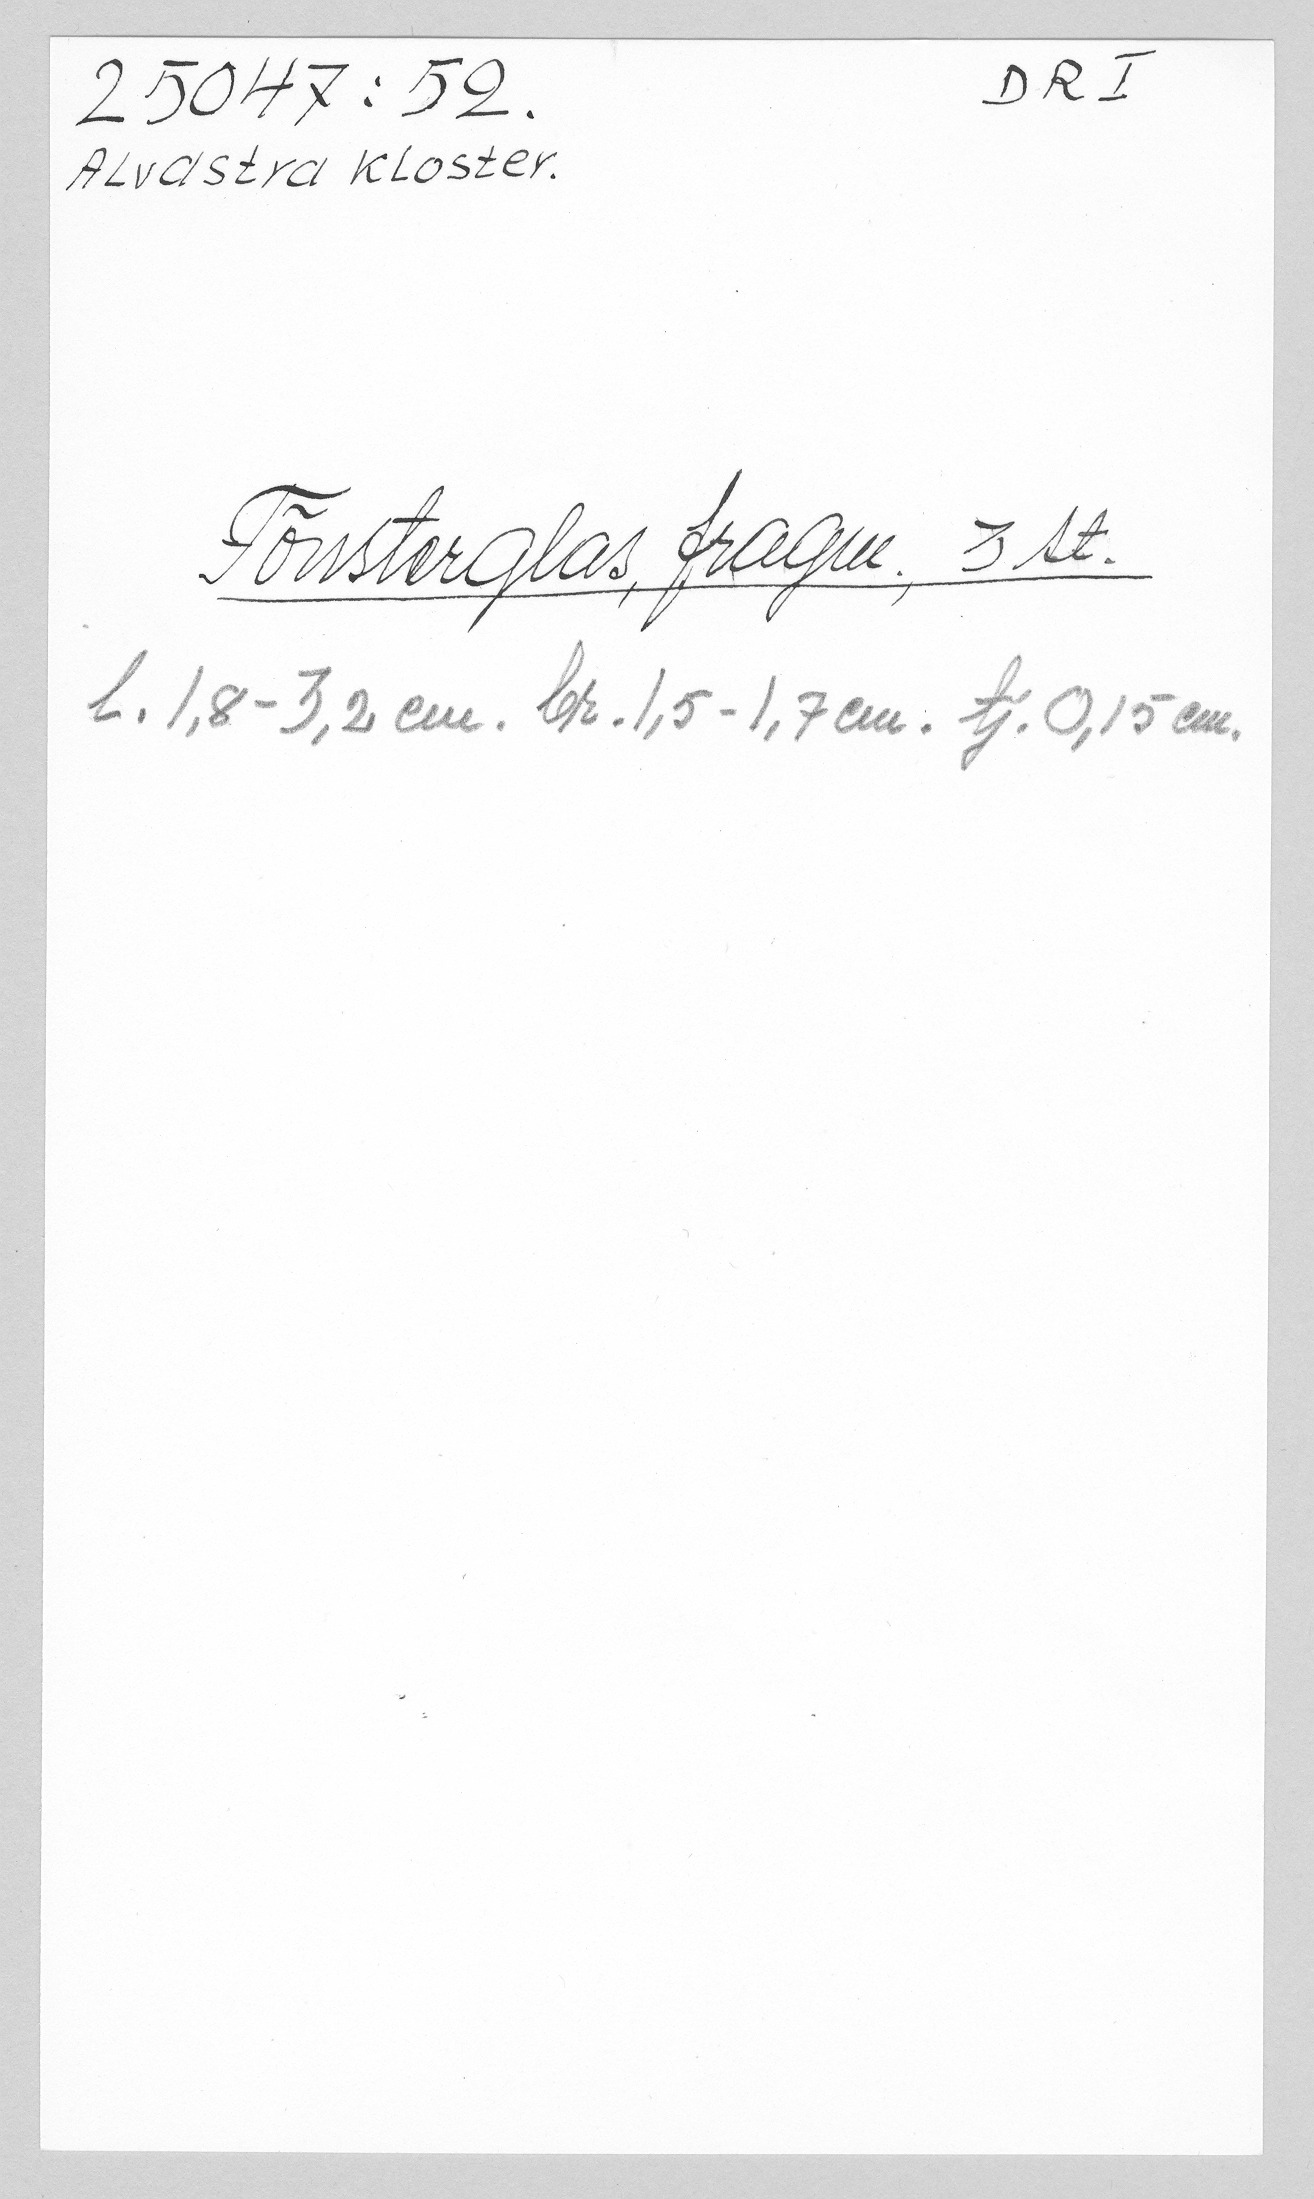 25047:52. DR I
Alvastra kloster.
Fönsterglas, fragm., 3 st.
L. 1,8-3,2 cm. br. 1,5-1,7 cm. tj. 0,15 cm.